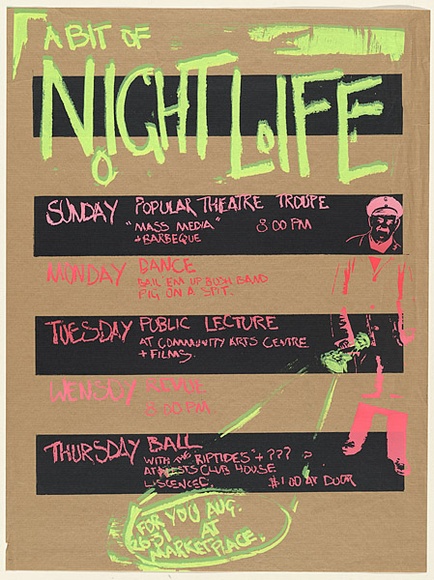 A BIT OF
NIGHT LIFE
SUNDAY POPULAR THEATRE TROUPE
"MASS MEDIA" 8 00 PM
+ BARBEQUE
MONDAY DANCE
BAIL EM UP BUSH BAND
PIG ON A SPIT.
TUESDAY PUBLIC LECTURE
AT COMMUNITY ARTS CENTRE
+ FILMS.
WENSDY REVUE
8 00 PM
THURSDAY BALL
WITH THE RIPTIDES + ???
AT CLUB HOUSE
LISCENCED $1 00 AT DOOR
FOR YOU AUG.
26-31 AT
MARKETPLACE.